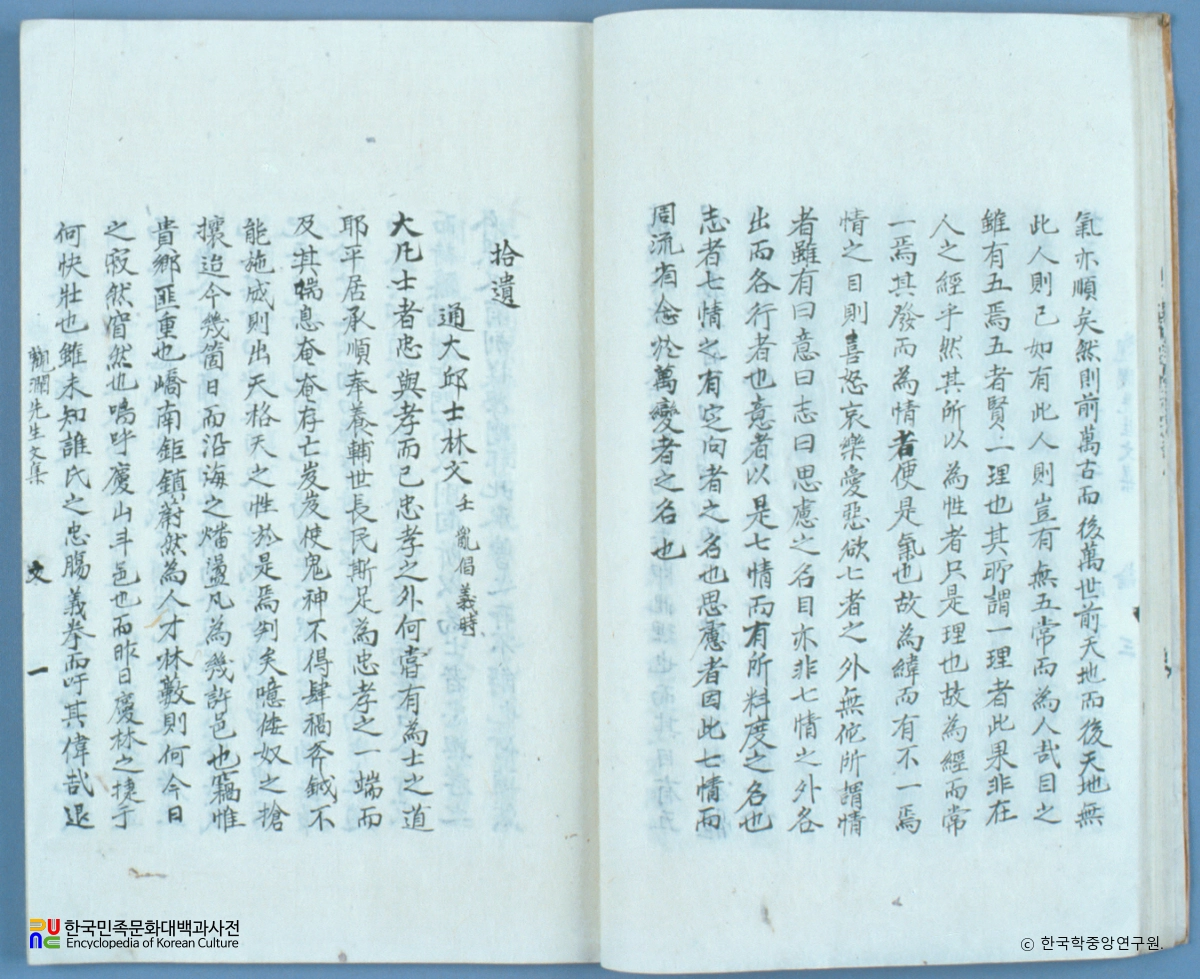 氣亦順矣然則前萬古而後萬世前天地而後天地無
此人則已如有此人則豈有無五常而為人哉目之
雖有五焉五者賢二理也其所謂一理者此果非在
人之經乎然其所以為性者只是理也故為經而常
一焉其發而為情者便是氣也故為緯而有不一焉
情之目則喜怒哀樂愛惡欲七者之外無佗所謂情
者雖有曰意曰志曰思慮之名目亦非七情之外各
出而各行者也意者以是七情而有所料度之名也
志者七情之有定向者之名也思慮者因此七情而
周流省念於萬變者之名也
拾遺
通大邱士林文 壬亂倡義時
大凡士者忠與孝而已忠孝之外何嘗有為士之道
耶平居承順奉養輔世長民斯足為忠孝之一端而
及其喘息奄奄存亡岌岌使鬼神不得肆禍斧鉞不
能施威則出天格天之性於是焉判矣噫倭奴之搶
攘迨今幾箇日而沿海之燔盪凡為幾許邑也竊惟
貴鄉匪重也嶠南鉅鎮蔚然為人才林藪則何今日
之寂然窅然也嗚呼慶山斗邑也而昨日慶林之捷于
何快壯也雖未知誰氏之忠膓義拳而吁其偉哉退
觀瀾先生文集 文 一
한국민족문화대백과사전
Encyclopedia of Korean Culture
© 한국학중앙연구원.